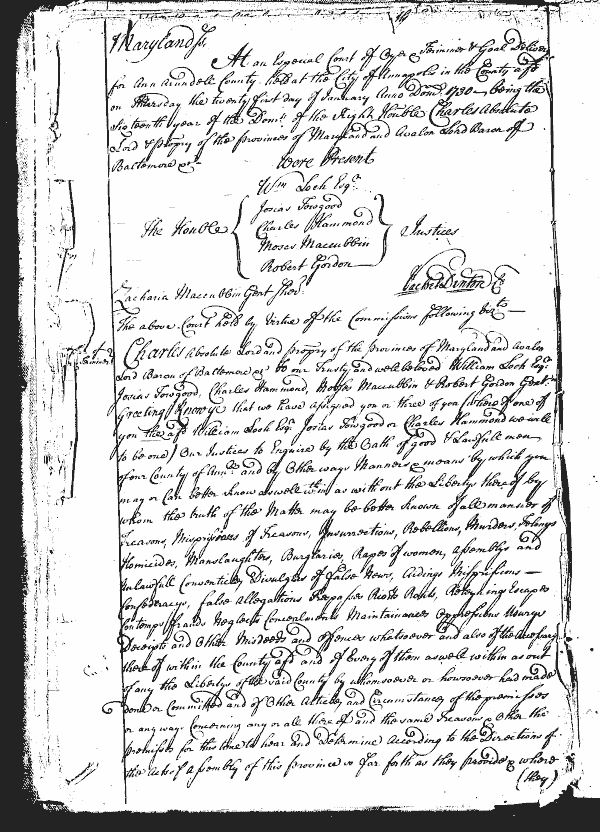 Maryland ss.
At an Especial Court of Oyer & Terminer & Goal Delivery
for Ann Arundell County held at the City of Annapolis in the County afd
on Thursday the twenty first day of January Anno Dom. 1730 being the
Sixteenth year of the Domn. of the Right Honble Charles Absolute
Lord & propry of the provinces of Maryland and Avalon Lord Baron of
Baltemore &c.
Were Present
Wm Loch Esqr.
Josias Towgood
The Honble Charles Hammond Justices
Moses Maccubbin
Robert Gordon
Vachel Denton
Zacharia Maccubbin Gent Sher.
The above Court held by Virtue of the Commissions following vizt
Charles Absolute Lord and propry of the provinces of Maryland and Avalon
Lord Baron of Baltemore &c. to our trusty and well beloved William Loch Esqr.
Josias Towgood, Charles Hammond, Moses Maccubbin & Robert Gordon Gent.
Greeting Know ye that we have assigned you or three of you (whereof one of
you the afd William Loch Esqr. Josias Towgood or Charles Hammond we will
to be one) Our Justices to Enquire by the Oath of good & Lawfull men
of our County of Annl. and by Other ways Manners & means by which you
may or Can better know aswell within as without the Libertys thereof by
whom the truth of the Matter may be better known of all manner of
Treasons, Misprisions of Treasons, Insurrections, Rebellions, Murders, Felonys
Homicides, Manslaughters, Burglaries, Rapes of women, assemblys and
Unlawfull Conventicles Divulgers of false News, Aidings Misprissions
Confederacys, false Allegations Trespasses Riots Routs, Escapes
Contempts frauds Neglects Concealments Maintainances Oppressions Usurys
Deceipts and Other Misdeeds and offences whatsoever and also of the Accessarys
thereof within the County afd and of Every of them aswell within as out
of any the Libertys of the said County by whomsoever or howsoever had made
done or Committed and of Other Articles and Circumstances of the premisses
or any way Concerning any or all thereof and the same Treasons & Other the
premisses for this time to hear and Determine According to the Directions of
the Acts of Assembly of this province so far forth as they provide & where
(they)